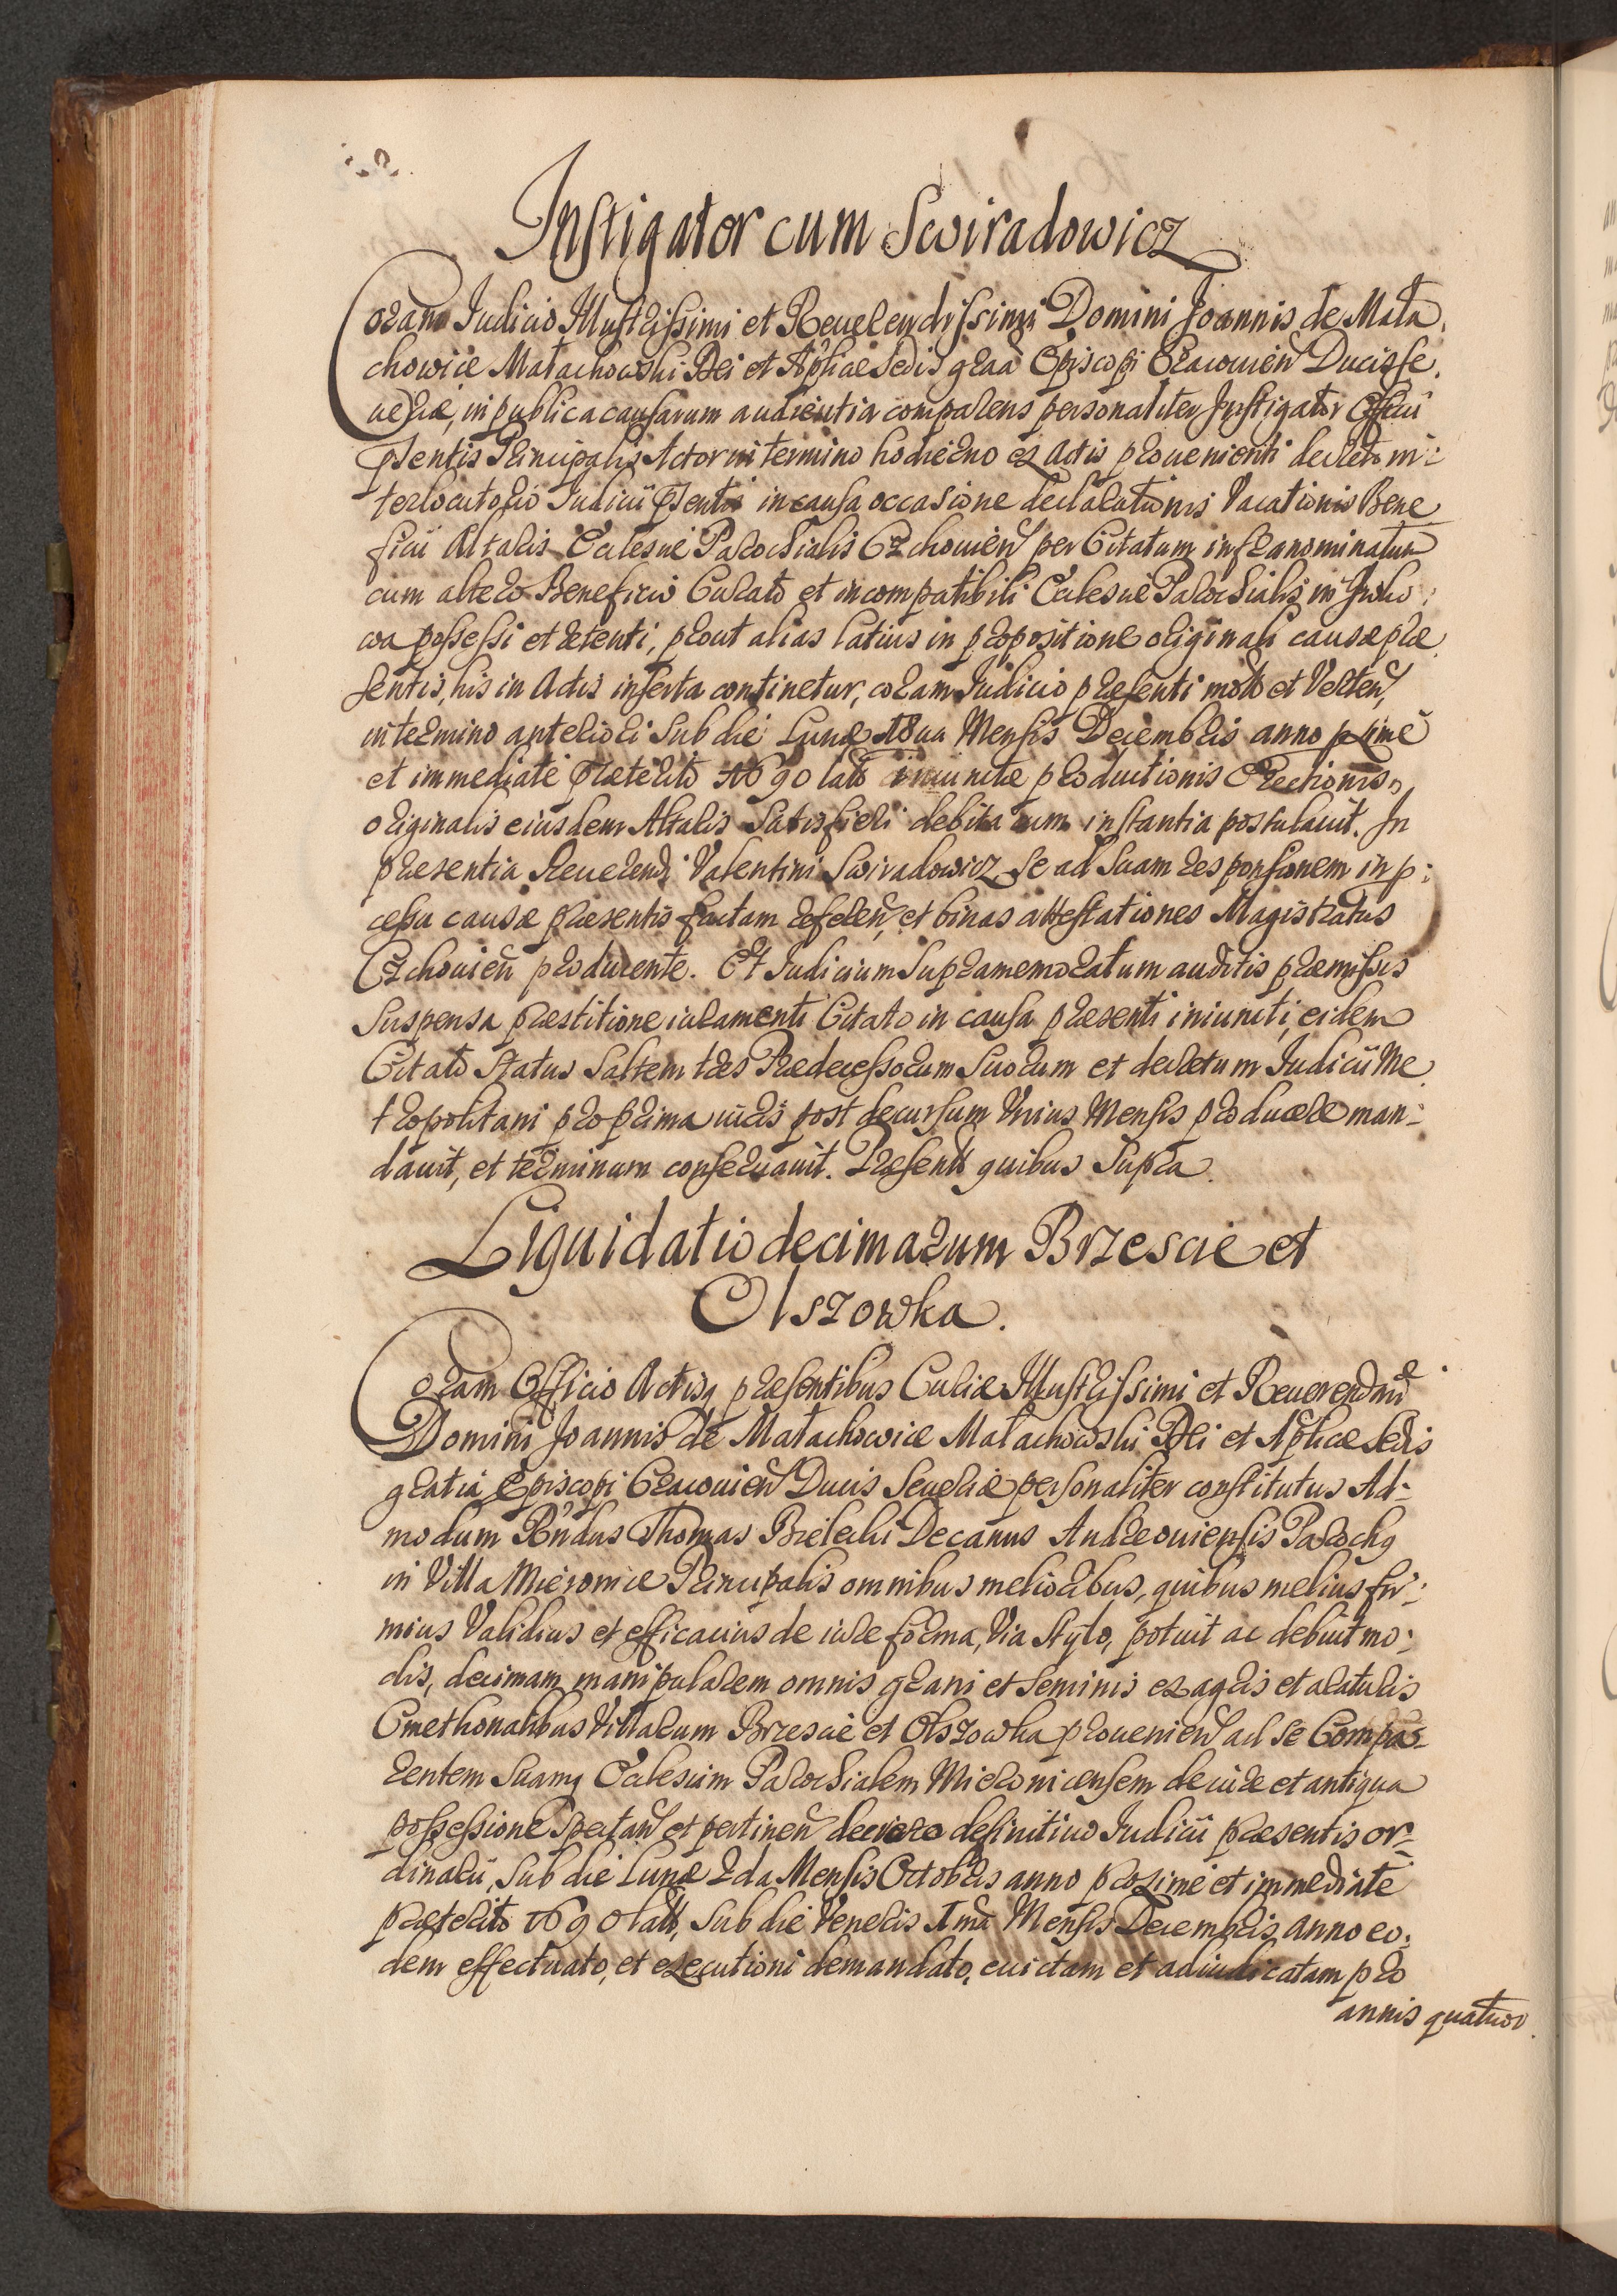 Instigator cum Swiradowicz
Coram Iudicio Illustrissimi et Reuerendissimi Domini Joannis de Mała
chowice Małachowski Dei et Aplicae Sedis graã Episcopi Cracouień Ducis Se
ueriæ, in publica causarum audientia comparens personaliter Instigator Officii
pñtentis Principalis Actor in termino hodierno ex Actis proueniente decreto in:
terlocutorio Iudicii pñtentis in causa occasione declarationis Vacationis Bene
ficii Altaris Ecclesiæ Parochialis Czchouień per Citatum infranominatum
cum altero Beneficio Curato et incompatibili Ecclesiæ Parochialis in
wa possessi et detenti, prout alias latius in propositione originali causæ præ
sentis, his in Actis inserta continetur, coram Iudicio præsenti moto et Verten,
in termino anteriori sub die Lunæ 18ua Mensis Decembris anno proxime
et immediate præterito 1690 lato iniunctæ productionis Erectionis
originalis eiusdem Altaris satisfieri debita cum instantia postulauit. In
præsentia Reuerendi Valentini Swiradowicz se ad suam responsionem in p:
cessu causæ præsentis factam referen, et binas attestationes Magistratus
Czchouień producente. Et Iudicium supramemoratum auditis præmissis
suspensa præstitione iuramenti Citato in causa præsenti iniuncti, eidem
Citato status saltem tres Prædecessorum suorum et decretum Iudicii Me
tropolitani pro prima iuris post decursum Vnius Mensis producere man:
dauit, et terminum conseruauit. Præsentt quibus supra.
Liquidatio decimarum Brzescie et
Olszowka.
Coram Officio Actisq præsentibus Curiæ Illustrissimi et Reuerendmi
Domini Joannis de Małachowice Małachowski Dei et Aplicae Sedis
gratia Episcopi Cracouień Ducis Seueriæ personaliter constitutus Ad:
modum Rndus Thomas Bielecki Decanus Andreouiensis Parochq
in Villa Mieronice Principalis omnibus melioribus, quibus melius fir:
mius Validius et efficacius de iure forma, Via stylo, potuit ac debuit mo:
dis, decimam manipularem omnis grani et seminis ex agris et araturis
Cmethonalibus Villarum Brzescie et Olszowka prouenień ad se Compa:
rentem suamq Ecclesiam Parochialem Mieronicensem de iure et antiqua
possessione spectań et pertineń decreto definitiuo Iudicii præsentis or:
dinarii, sub die Lunæ 2da Mensis Octobris anno proxime et immediate
præterito 1690 latt, sub die Veneris 1ma Mensis Decembris anno eo:
dem effectuato, et executioni demandato, euictam et adiudicatam pro
annis quatuor